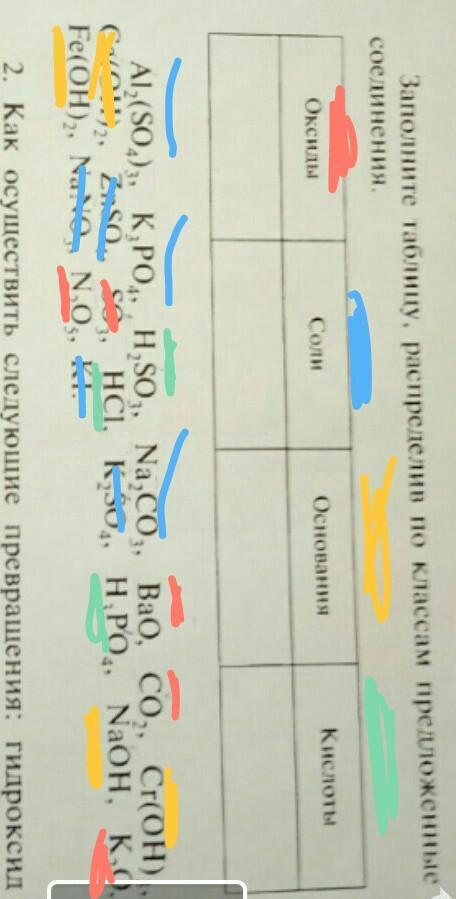 Заполните таблицу, распределив по классам предложенные
соединения.
Оксиды Соли Основания Кислоты
Al₂(SO₄)₃, K₃PO₄, H₂SO₃, Na₂CO₃, BaO, CO₂, Cr(OH)₃,
ZnSO₄, SO₃, HCl, K₂SO₄, H₃PO₄, NaOH, K₂O,
Fe(OH)₂, NaNO₃, N₂O₅,
2. Как осуществить следующие превращения: гидроксид